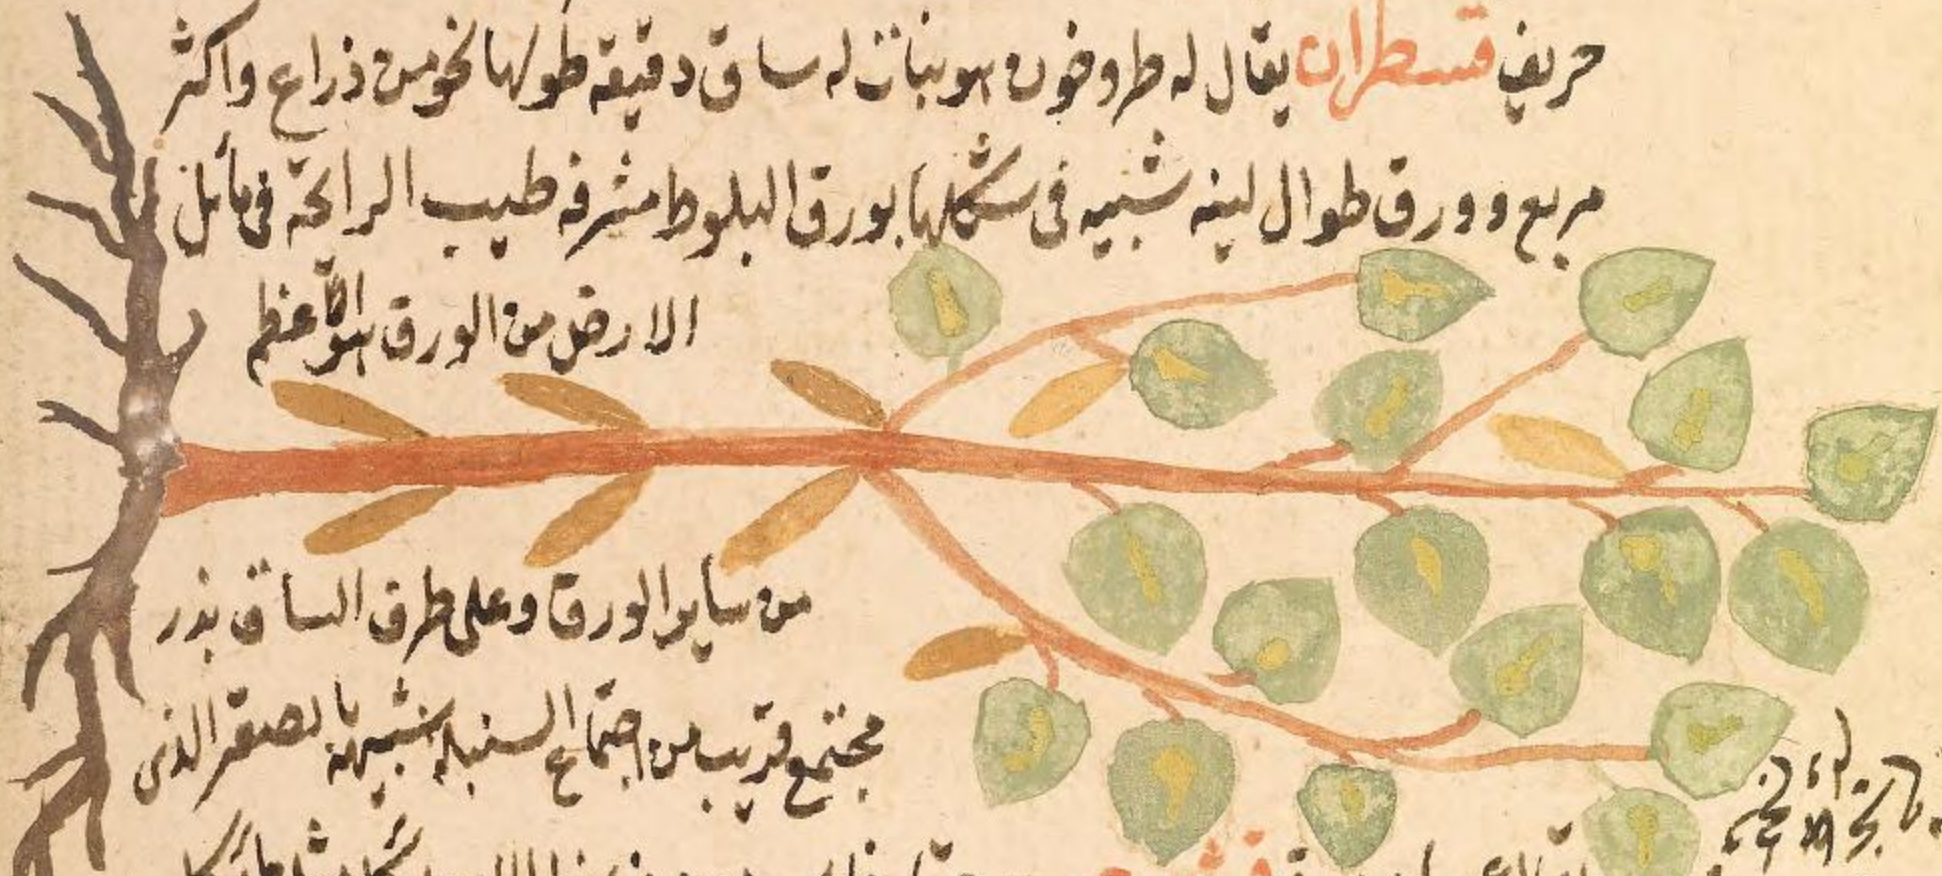 حريف قسطران يقال له طروخون هو نبات له ساق دقيقة طولها نحو من ذراع واكثر
مربع وورق طوال لينة شبيه فى شكلها بورق البلوط مشرفه طيب الرائحة فى مايل
الارض من الورق هو اعظم
من ساير الورق وعلى طرف الساق بذر
مجتمع قريب من اجتماع السنبلة شبيهة بالصعتر الذى